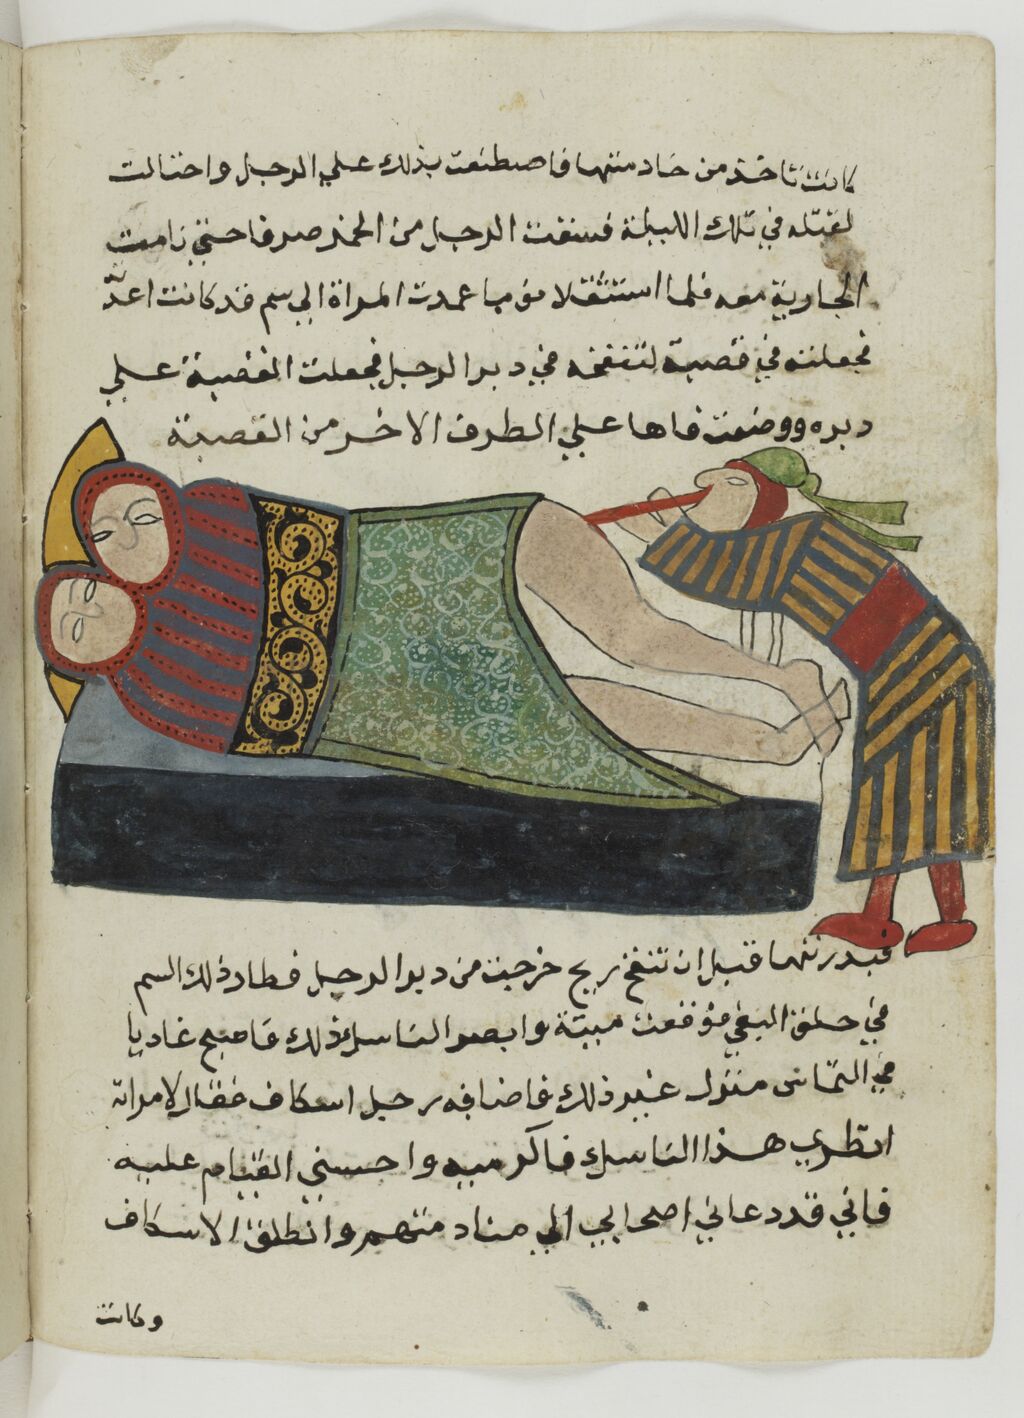 كانت تاخذ من خادمتها فاصطنعت بذلك علي الرجل واحتالت
لقتله في تلك الليلة فسقت الرجل من الخمر صرفا حتي نامت
الجارية معه فلما استثقلا نوما عمدت المراة الي سم قد كانت اعدّ
فجعلته في قصبة لتنفخه في دبر الرجل فجعلت القصبة علي
دبره ووضعت فاها علي الطرف الاخر من القصبة
فبدرتها قبل ان تنفخ ريح خرجت من دبر الرجل فطار ذلك السم
في حلق البغي فوقعت ميتة وابصر الناسك ذلك فاصبح غاديا
في التماس منزل غير ذلك فاضافه رجل اسكاف فقال لامراته
انظري هذا الناسك فاكرميه واحسني القيام عليه
فاني قد دعاني اصحابي الي منادمتهم وانطلق الاسكاف
وكانت